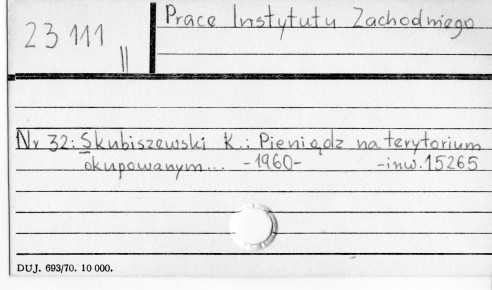 23 111 II
Prace Instytutu Zachodniego
Nr 32: Skubiszewski K.: Pieniądz na terytorium
okupowanym... -1960- -inw. 15265
DUJ. 693/70. 10 000.